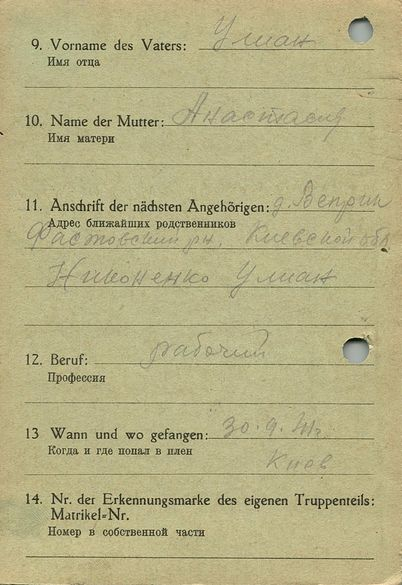 9. Vorname des Vaters: Улиан
Имя отца
10. Name der Mutter: Анастасия
Имя матери
11. Anschrift der nächsten Angehörigen: д. Веприк
Адрес ближайших родственников
Фастовский рн. Киевской обл
Никоненко Улиан
12. Beruf: рабочий
Профессия
13 Wann und wo gefangen: 30.9.41г
Когда и где попал в плен
Киев
14. Nr. der Erkennungsmarke des eigenen Truppenteils:
Matrikel-Nr.
Номер в собственной части